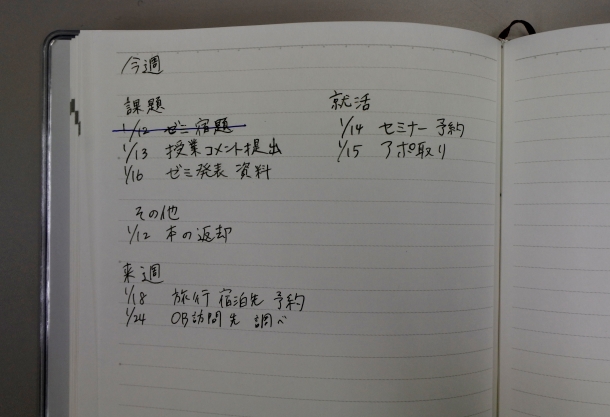 今週
課題
1/12 ゼミ宿題
1/13 授業コメント提出
1/16 ゼミ発表 資料
就活
1/14 セミナー予約
1/15 アポ取り
その他
1/12 本の返却
来週
1/18 旅行 宿泊先 予約
1/24 OB訪問先 調べ